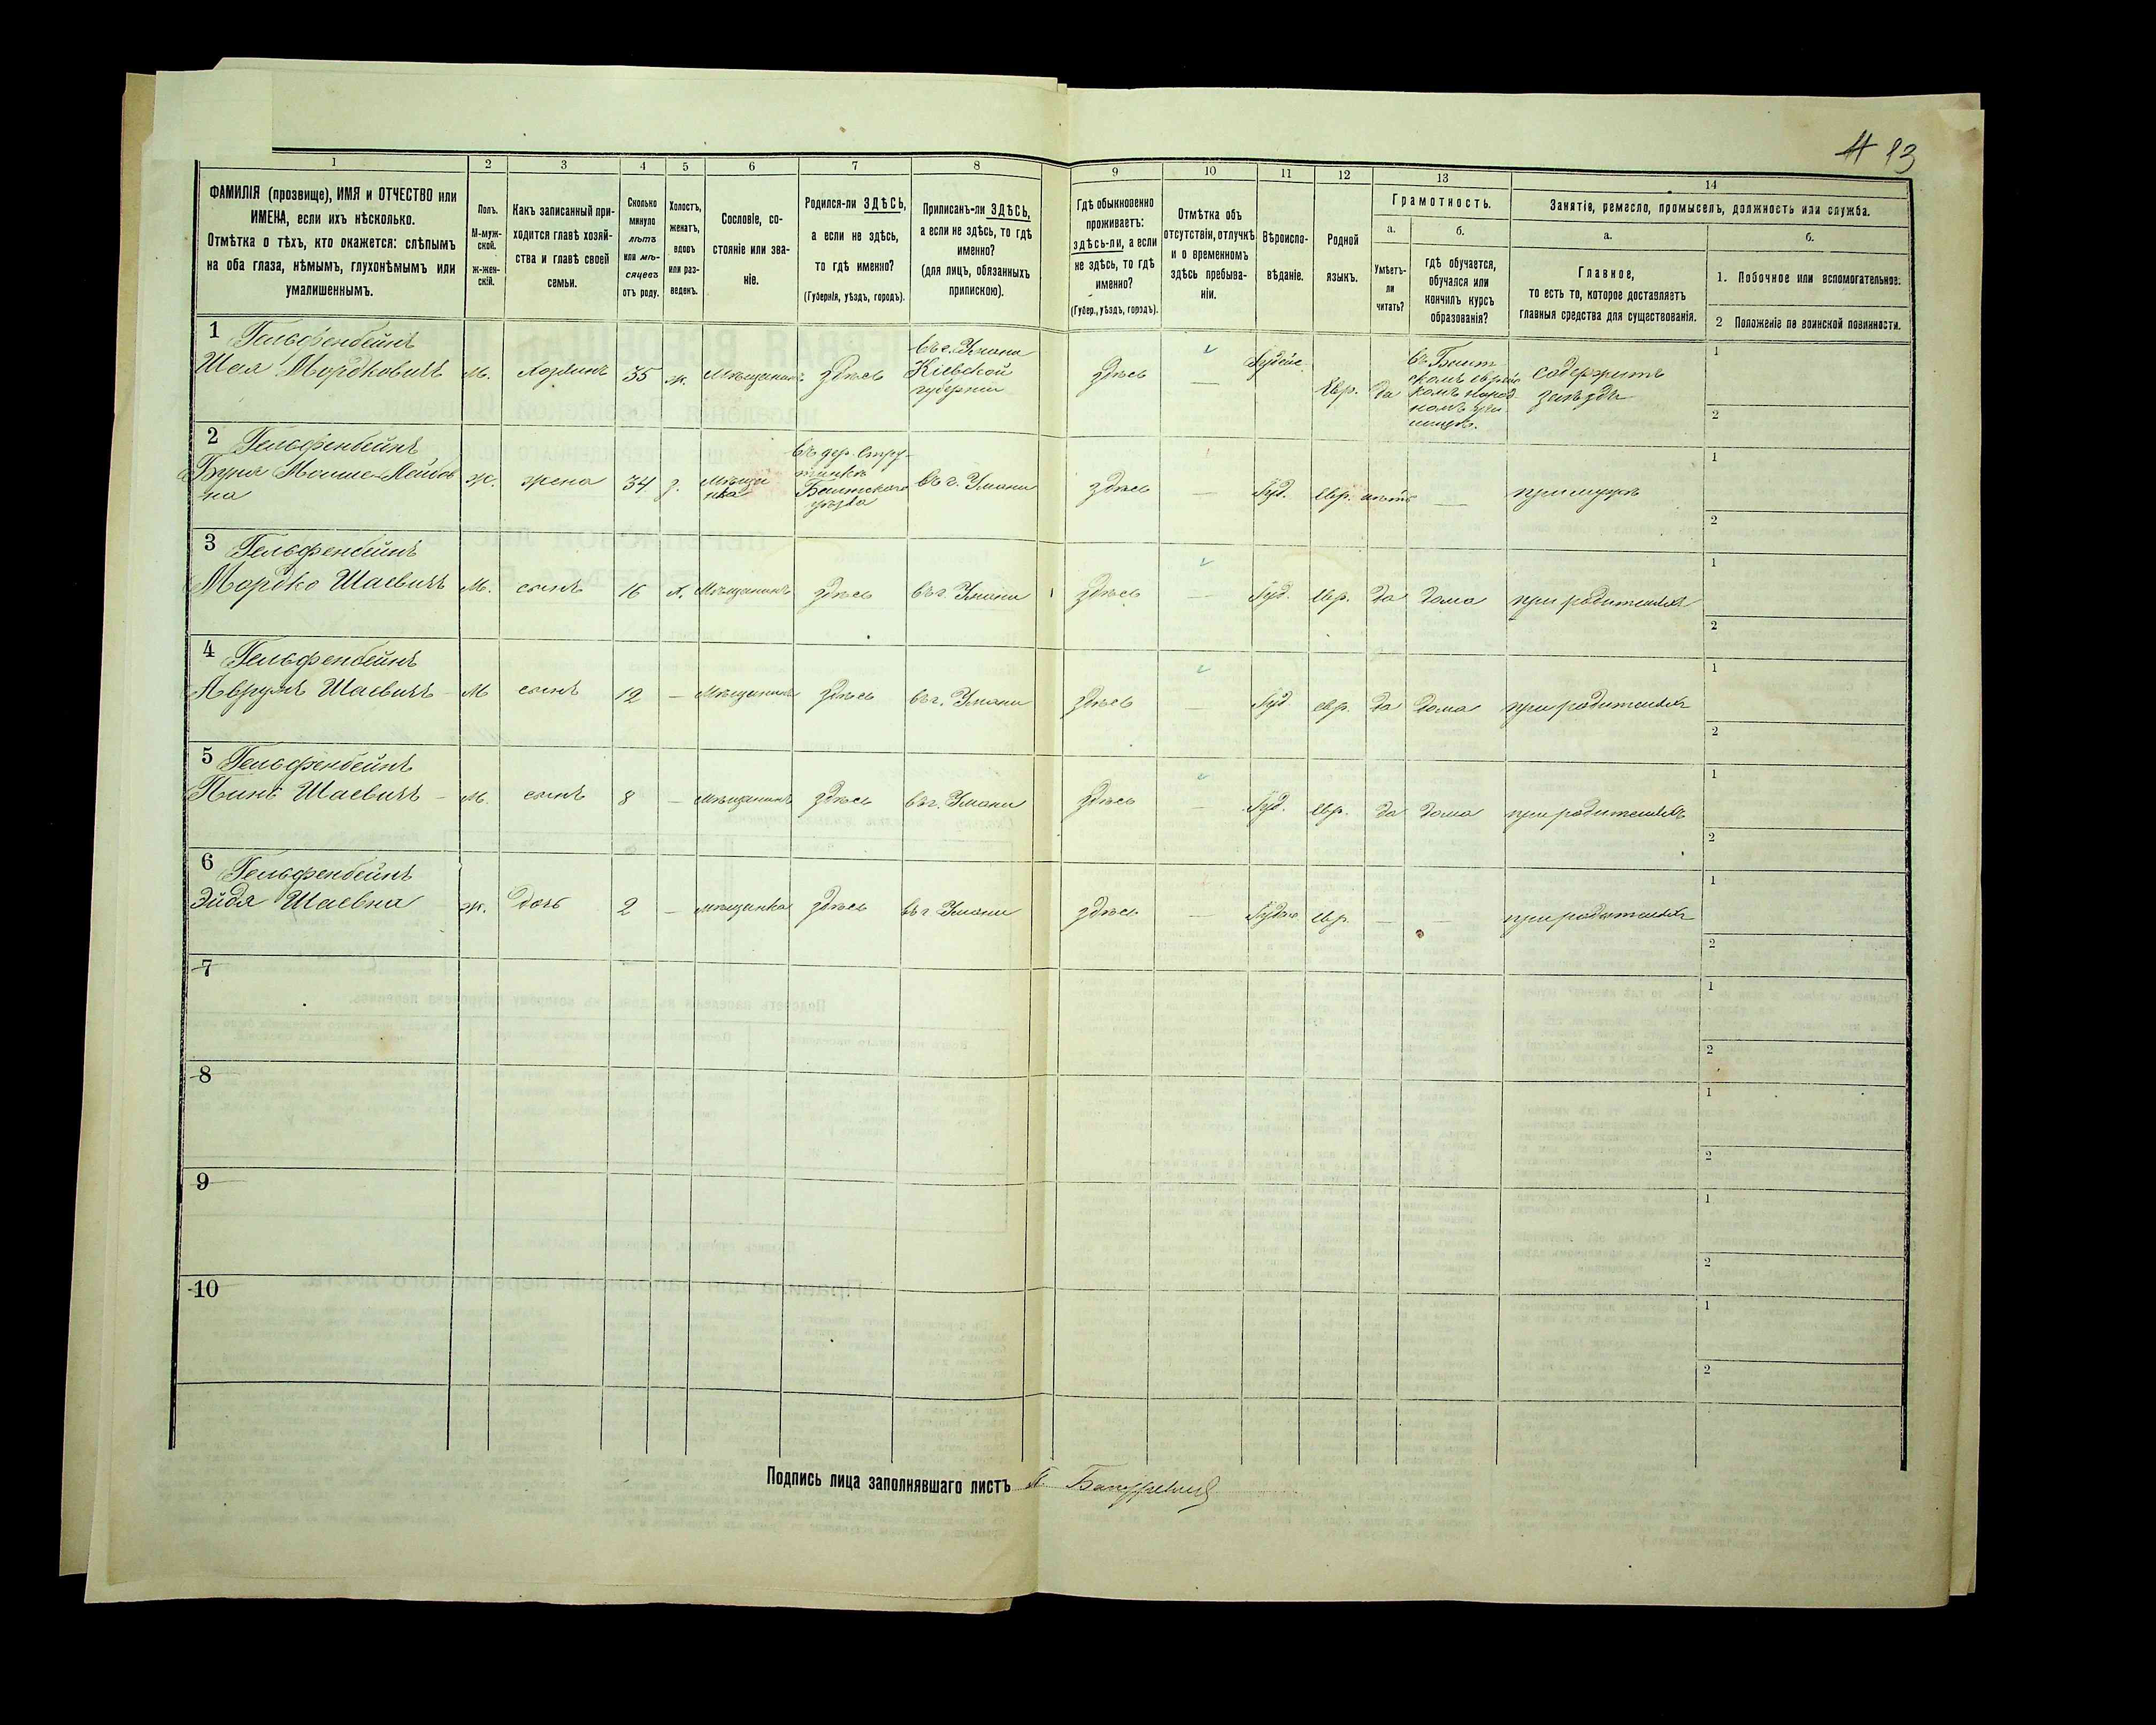 # 93
1 2 3 4 5 6 7 8 9 10 11 12 13 14
ФАМИЛІЯ (прозвище), ИМЯ и ОТЧЕСТВО или
ИМЕНА, если ихъ нѣсколько.
Отмѣтка о тѣхъ, кто окажется: слѣпымъ
на оба глаза, нѣмымъ, глухонѣмымъ или
умалишеннымъ.
Полъ.
М-муж-
ской.
ж-жен-
скій.
Какъ записанный при-
ходится главѣ хозяй-
ства и главѣ своей
семьи.
Сколько
минуло
лѣтъ
или мѣ-
сяцевъ
отъ роду.
Холостъ,
женатъ,
вдовъ
или раз-
веденъ.
Сословіе, со-
стояніе или зва-
ніе.
Родился-ли ЗДѢСЬ,
а если не здѣсь,
то гдѣ именно?
(Губернія, уѣздъ, городъ).
Приписанъ-ли ЗДѢСЬ,
а если не здѣсь, то гдѣ
именно?
(для лицъ, обязанныхъ
припискою).
Гдѣ обыкновенно
проживаетъ:
здѣсь-ли, а если
не здѣсь, то гдѣ
именно?
(Губер., уѣздъ, городъ).
Отмѣтка объ
отсутствіи, отлучкѣ
и о временномъ
здѣсь пребыва-
ніи.
Вѣроиспо-
вѣданіе.
Родной
языкъ.
Грамотность.
а.
Умѣетъ-
ли
читать?
б.
гдѣ обучается,
обучался или
кончилъ курсъ
образованія?
Занятіе, ремесло, промыселъ, должность или служба.
а.
Главное,
то есть то, которое доставляетъ
главныя средства для существованія.
б.
1. Побочное или вспомогательное.
2 Положеніе по воинской повинности.
1 Гельфенбейнъ
Шая Мордковичъ
м.
хозяинъ
35
ж.
Мѣщанинъ
здѣсь
въ г. Умани
Кіевской
губерніи
здѣсь
—
Іудейс.
Евр.
да
въ Балт
скомъ еврейс
комъ народ
номъ учи
лищѣ.
содержитъ
заѣзда
1
2
2 Гельфенбейнъ
Буня Мошко-Лейбов
на
ж.
жена
34
з.
Мѣщан
нка
въ дер.
Балтскаго
уѣзда
въ г. Умани
здѣсь
—
Іуд.
евр.
нѣтъ
—
при мужѣ
1
2
3 Гельфенбейнъ
Мордко Шаевичъ
м.
сынъ
16
х.
Мѣщанинъ
здѣсь
въ г. Умани
здѣсь
—
Іуд.
евр.
да
дома
при родителяхъ
1
2
4 Гельфенбейнъ
Аврумъ Шаевичъ
м
сынъ
12
—
Мѣщанинъ
здѣсь
въ г. Умани
здѣсь
—
Іуд.
евр.
да
дома
при родителяхъ
1
2
5 Гельфенбейнъ
Шаевичъ
м.
сынъ
8
—
мѣщанинъ
здѣсь
въ г. Умани
здѣсь
—
Іуд.
евр.
да
дома
при родителяхъ
1
2
6 Гельфенбейнъ
Эйдя Шаевна
ж.
дочь
2
—
мѣщанка
здѣсь
въ г Умани
здѣсь
—
евр.
—
—
при родителяхъ
1
2
7
1
2
8
1
2
9
1
2
10
1
2
Подпись лица заполнявшаго листъ